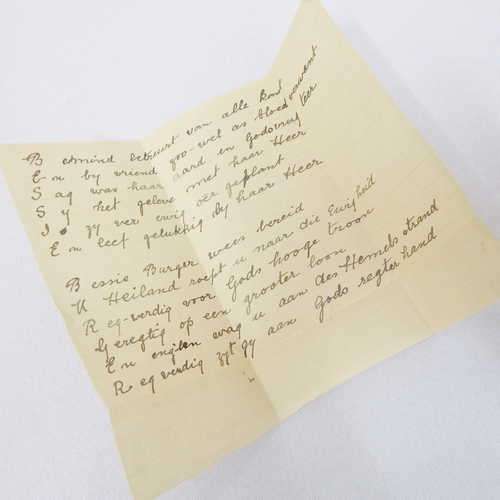 B emind betuurt van alle kant
E n by vriend goo-wel as bloed verwant
S ag was haar aard en Godvrug teer
S y het gelove met haar Heer
I s zy ver ewig oer geplant
E n leef gelukkig by haar Heer
B essie Burger wees bereid
U Heiland roept u naar die Ewigheid
R eg-verdig voor Gods hooge troon
G eregtig op een grooter loon
E n englen wag u aan des Hemels strand
R eg verdig zyt gy aan Gods regter hand